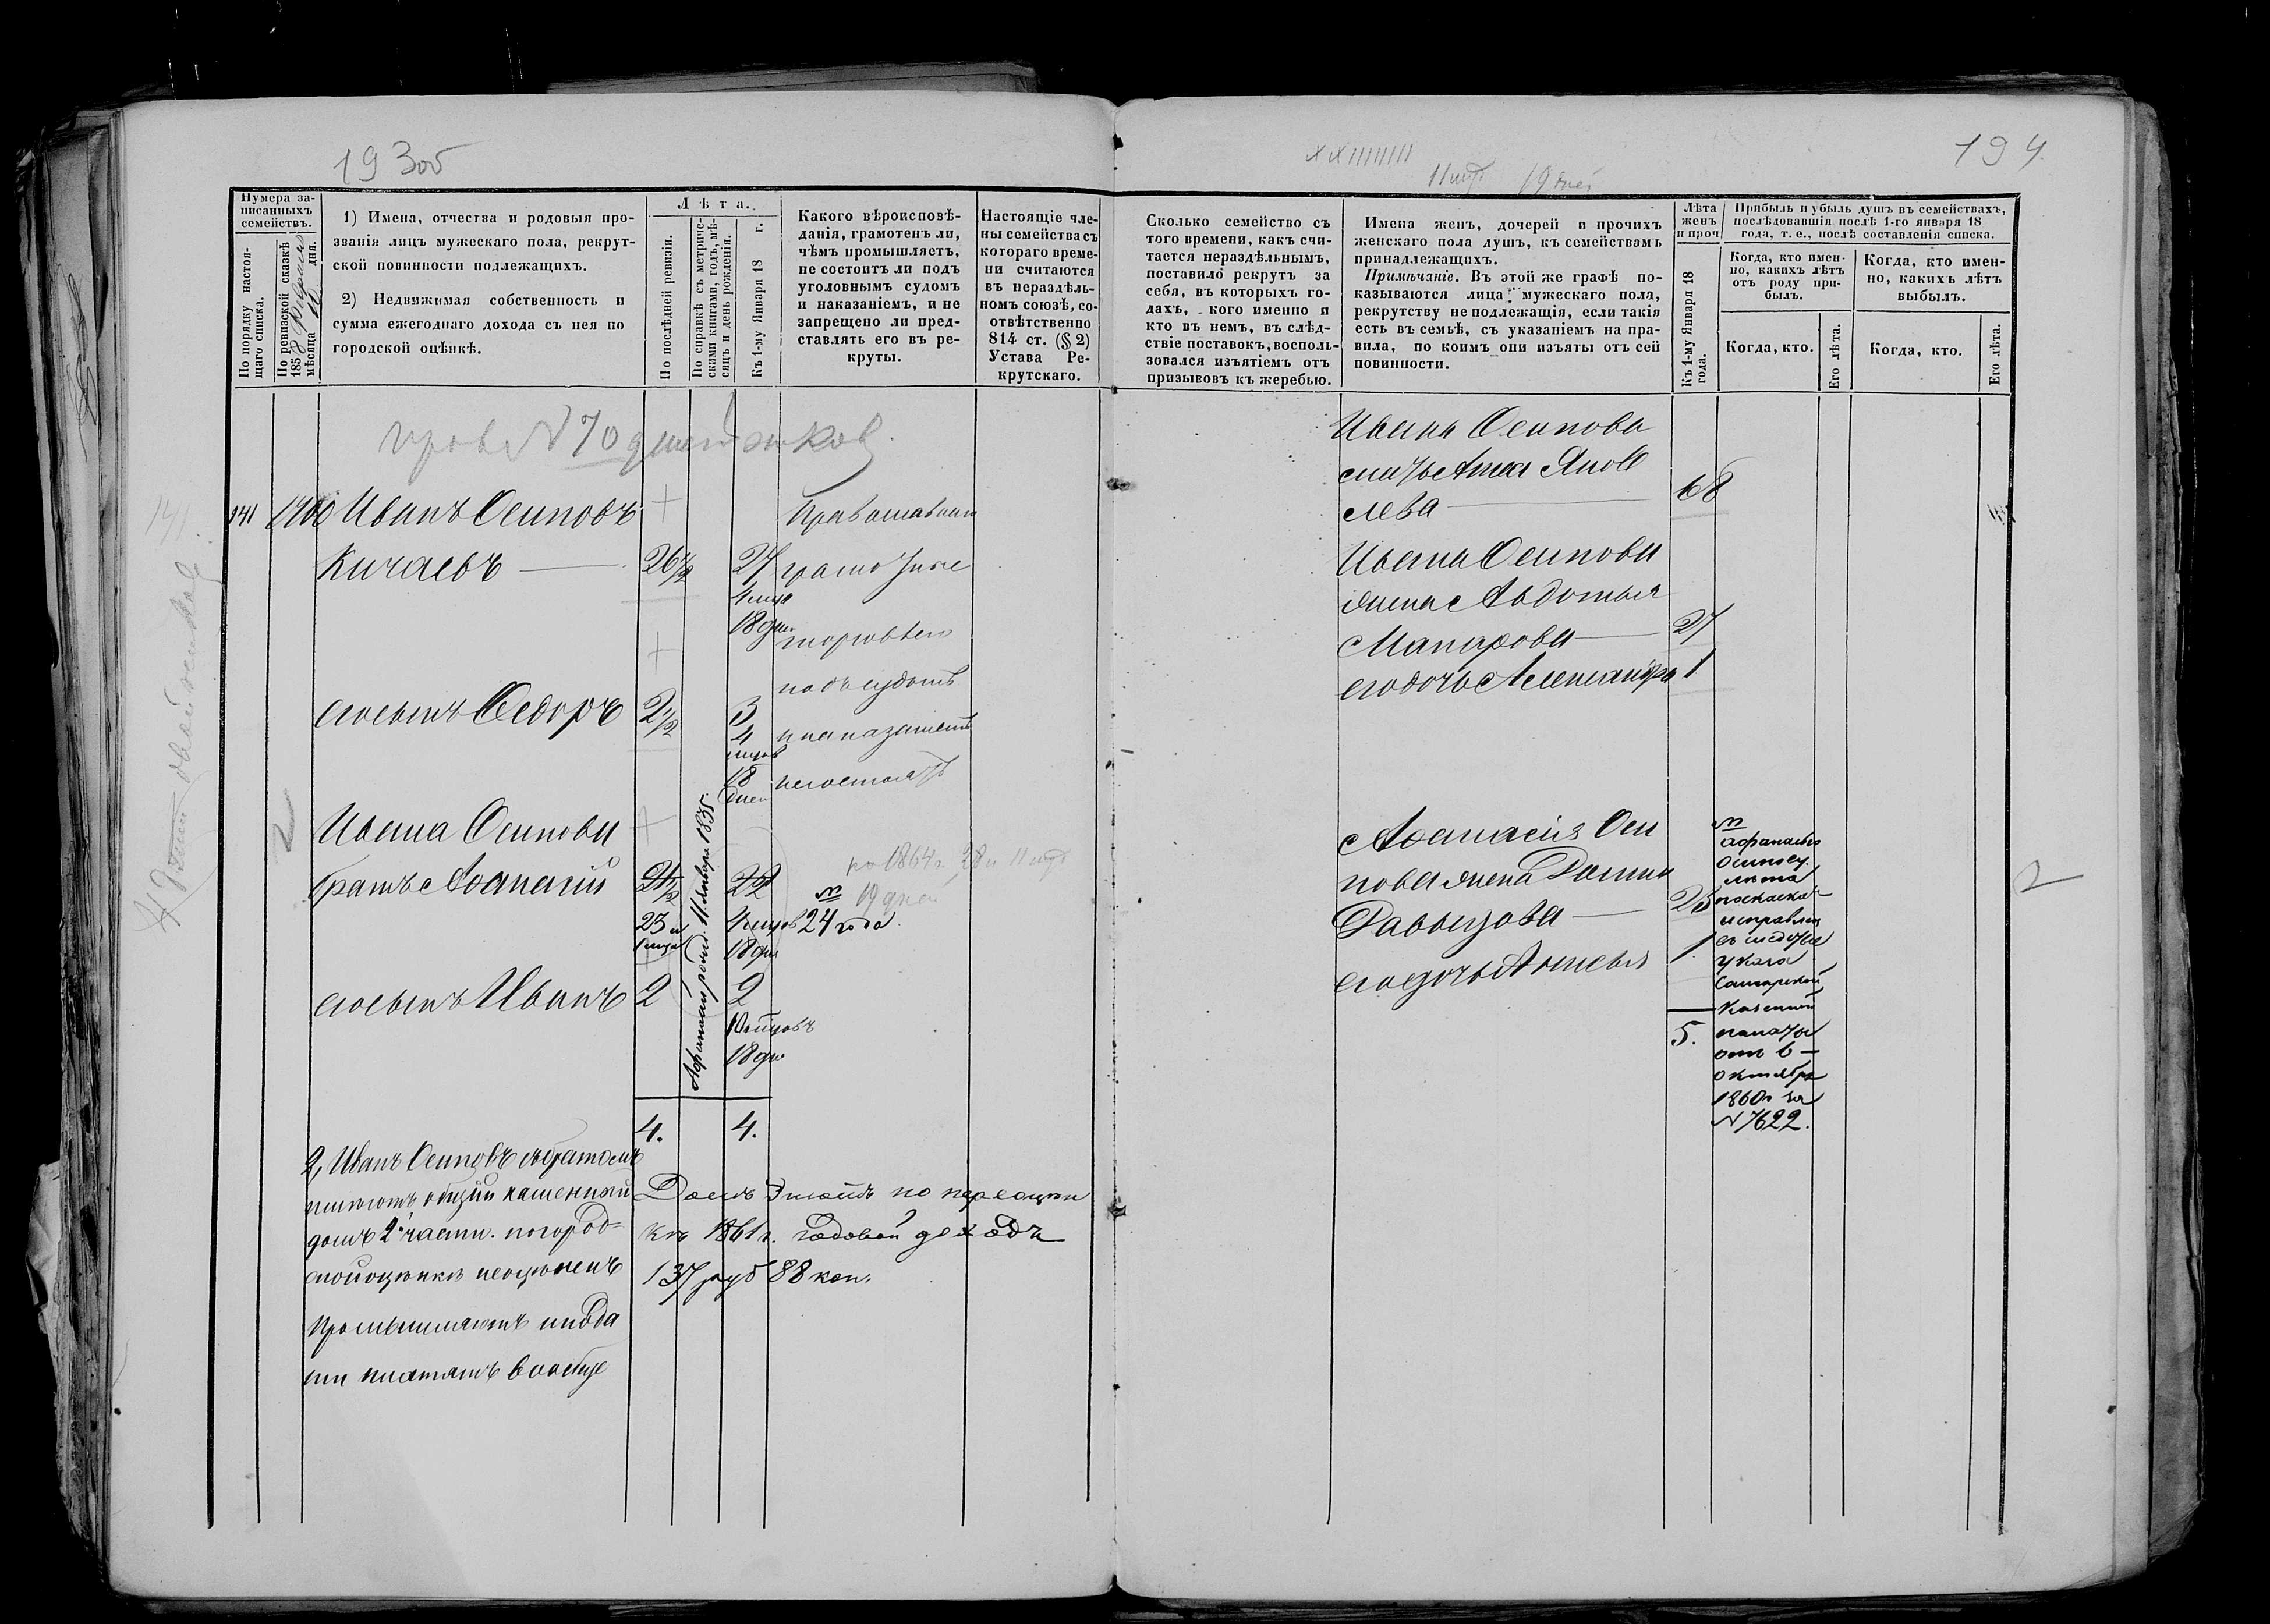 193об
194.
Нумера за-
писанныхъ
семействъ.
По порядку настоя-
щаго списка.
По ревизской сказкѣ
1858 Февраля
мѣсяца 10 дня.
1) Имена, отчества и родовыя про-
званія лицъ мужескаго пола, рекрут-
ской повинности подлежащихъ.
2) Недвижимая собственность и
сумма ежегоднаго дохода съ нея по
городской оцѣнкѣ.
Лѣта.
По послѣдней ревизіи.
По справкѣ съ метриче-
скими книгами, годъ, мѣ-
сяцъ и день рожденія.
Къ 1-му Января 18 г.
Какого вѣроисповѣ-
данія, грамотенъ ли,
чѣмъ промышляетъ,
не состоитъ ли подъ
уголовнымъ судомъ
и наказаніемъ, и не
запрещено ли пред-
ставлять его въ ре-
круты.
Настоящіе чле-
ны семейства съ
котораго време-
ни считаются
въ нераздѣль-
номъ союзѣ, со-
отвѣтственно
814 ст. (§ 2)
Устава Ре-
крутскаго.
141 1900 Иванъ Осиповъ
Кичаевъ 26 1/2 27
4 мца
18 дней
Православн
грамотные
торговлею
подъ судомъ
и наказаніемъ
несостоятъ
его сынъ Ѳедоръ 2 1/2 3
4
мцов
18
дней
Ивана Осипова
братъ Аѳанасій 21 1/2 22
23 и 4 мцов 24 года.
1 мца 18 дня
по 1864 г. 28 и 11 мцъ
19 дней
Афанасий родил. 11. Января 1835.
его сынъ Иванъ 2 2
10 мцовъ
18 дн
4. 4.
2, Иванъ Осиповъ съ братомъ
имѣютъ общій каменный
домъ 2 части. по город-
ской оцѣнкѣ неоцѣненъ
Промышляютъ и пода
ти платятъ вообще
Домъ этотъ по переоцѣн
кѣ 1861 г. годовой доходъ
137 руб 88 коп.
XXIIIIIIII
11 мцъ 19 дней
Сколько семейство съ
того времени, какъ счи-
тается нераздѣльнымъ,
поставило рекрутъ за
себя, въ которыхъ го-
дахъ, кого именно и
кто въ немъ, въ слѣд-
ствіе поставокъ, восполь-
зовался изъятіемъ отъ
призывовъ къ жеребью.
Имена женъ, дочерей и прочихъ
женскаго пола душъ, къ семействамъ
принадлежащихъ.
Примѣчаніе. Въ этой же графѣ по-
казываются лица мужескаго пола,
рекрутству не подлежащія, если такія
есть въ семьѣ, съ указаніемъ на пра-
вила, по коимъ они изъяты отъ сей
повинности.
Лѣта
женъ
и проч
Къ 1-му Января 18
года.
Прибыль и убыль душъ въ семействахъ,
послѣдовавшія послѣ 1-го января 18
года, т. е., послѣ составленія списка.
Когда, кто имен-
но, какихъ лѣтъ
отъ роду при-
былъ.
Когда, кто имен-
но, какихъ лѣтъ
выбылъ.
Когда, кто.
Его лѣта.
Когда, кто.
Его лѣта.
Ивана Осипова
мать Анна Яков
лева 68
Ивана Осипова
жена Авдотья
Макарова 27
его дочь Александра 1
Аѳанасія Оси
пова жена
Давыдова 23
его дочь 1
5.
Афанасью
Осипову
лета
по сказкѣ
исправлен
въ следствие
указа
Самарской
Казенной
палаты
отъ 6
октября
1860 г. за
№ 7622.
2